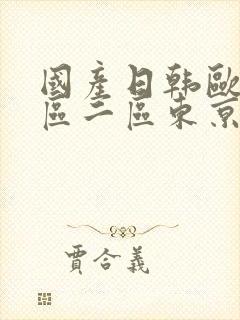 國產日韓歐
區二區東京
賈合義